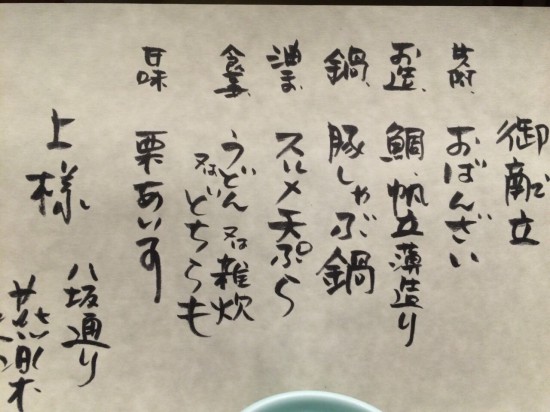 御献立
先附、おばんざい
お造、鯛、帆立薄造り
鍋、豚しゃぶ鍋
油もの、スルメ天ぷら
食事、うどん又は雑炊
又はどちらも
甘味 栗あいす
上様
八坂通り